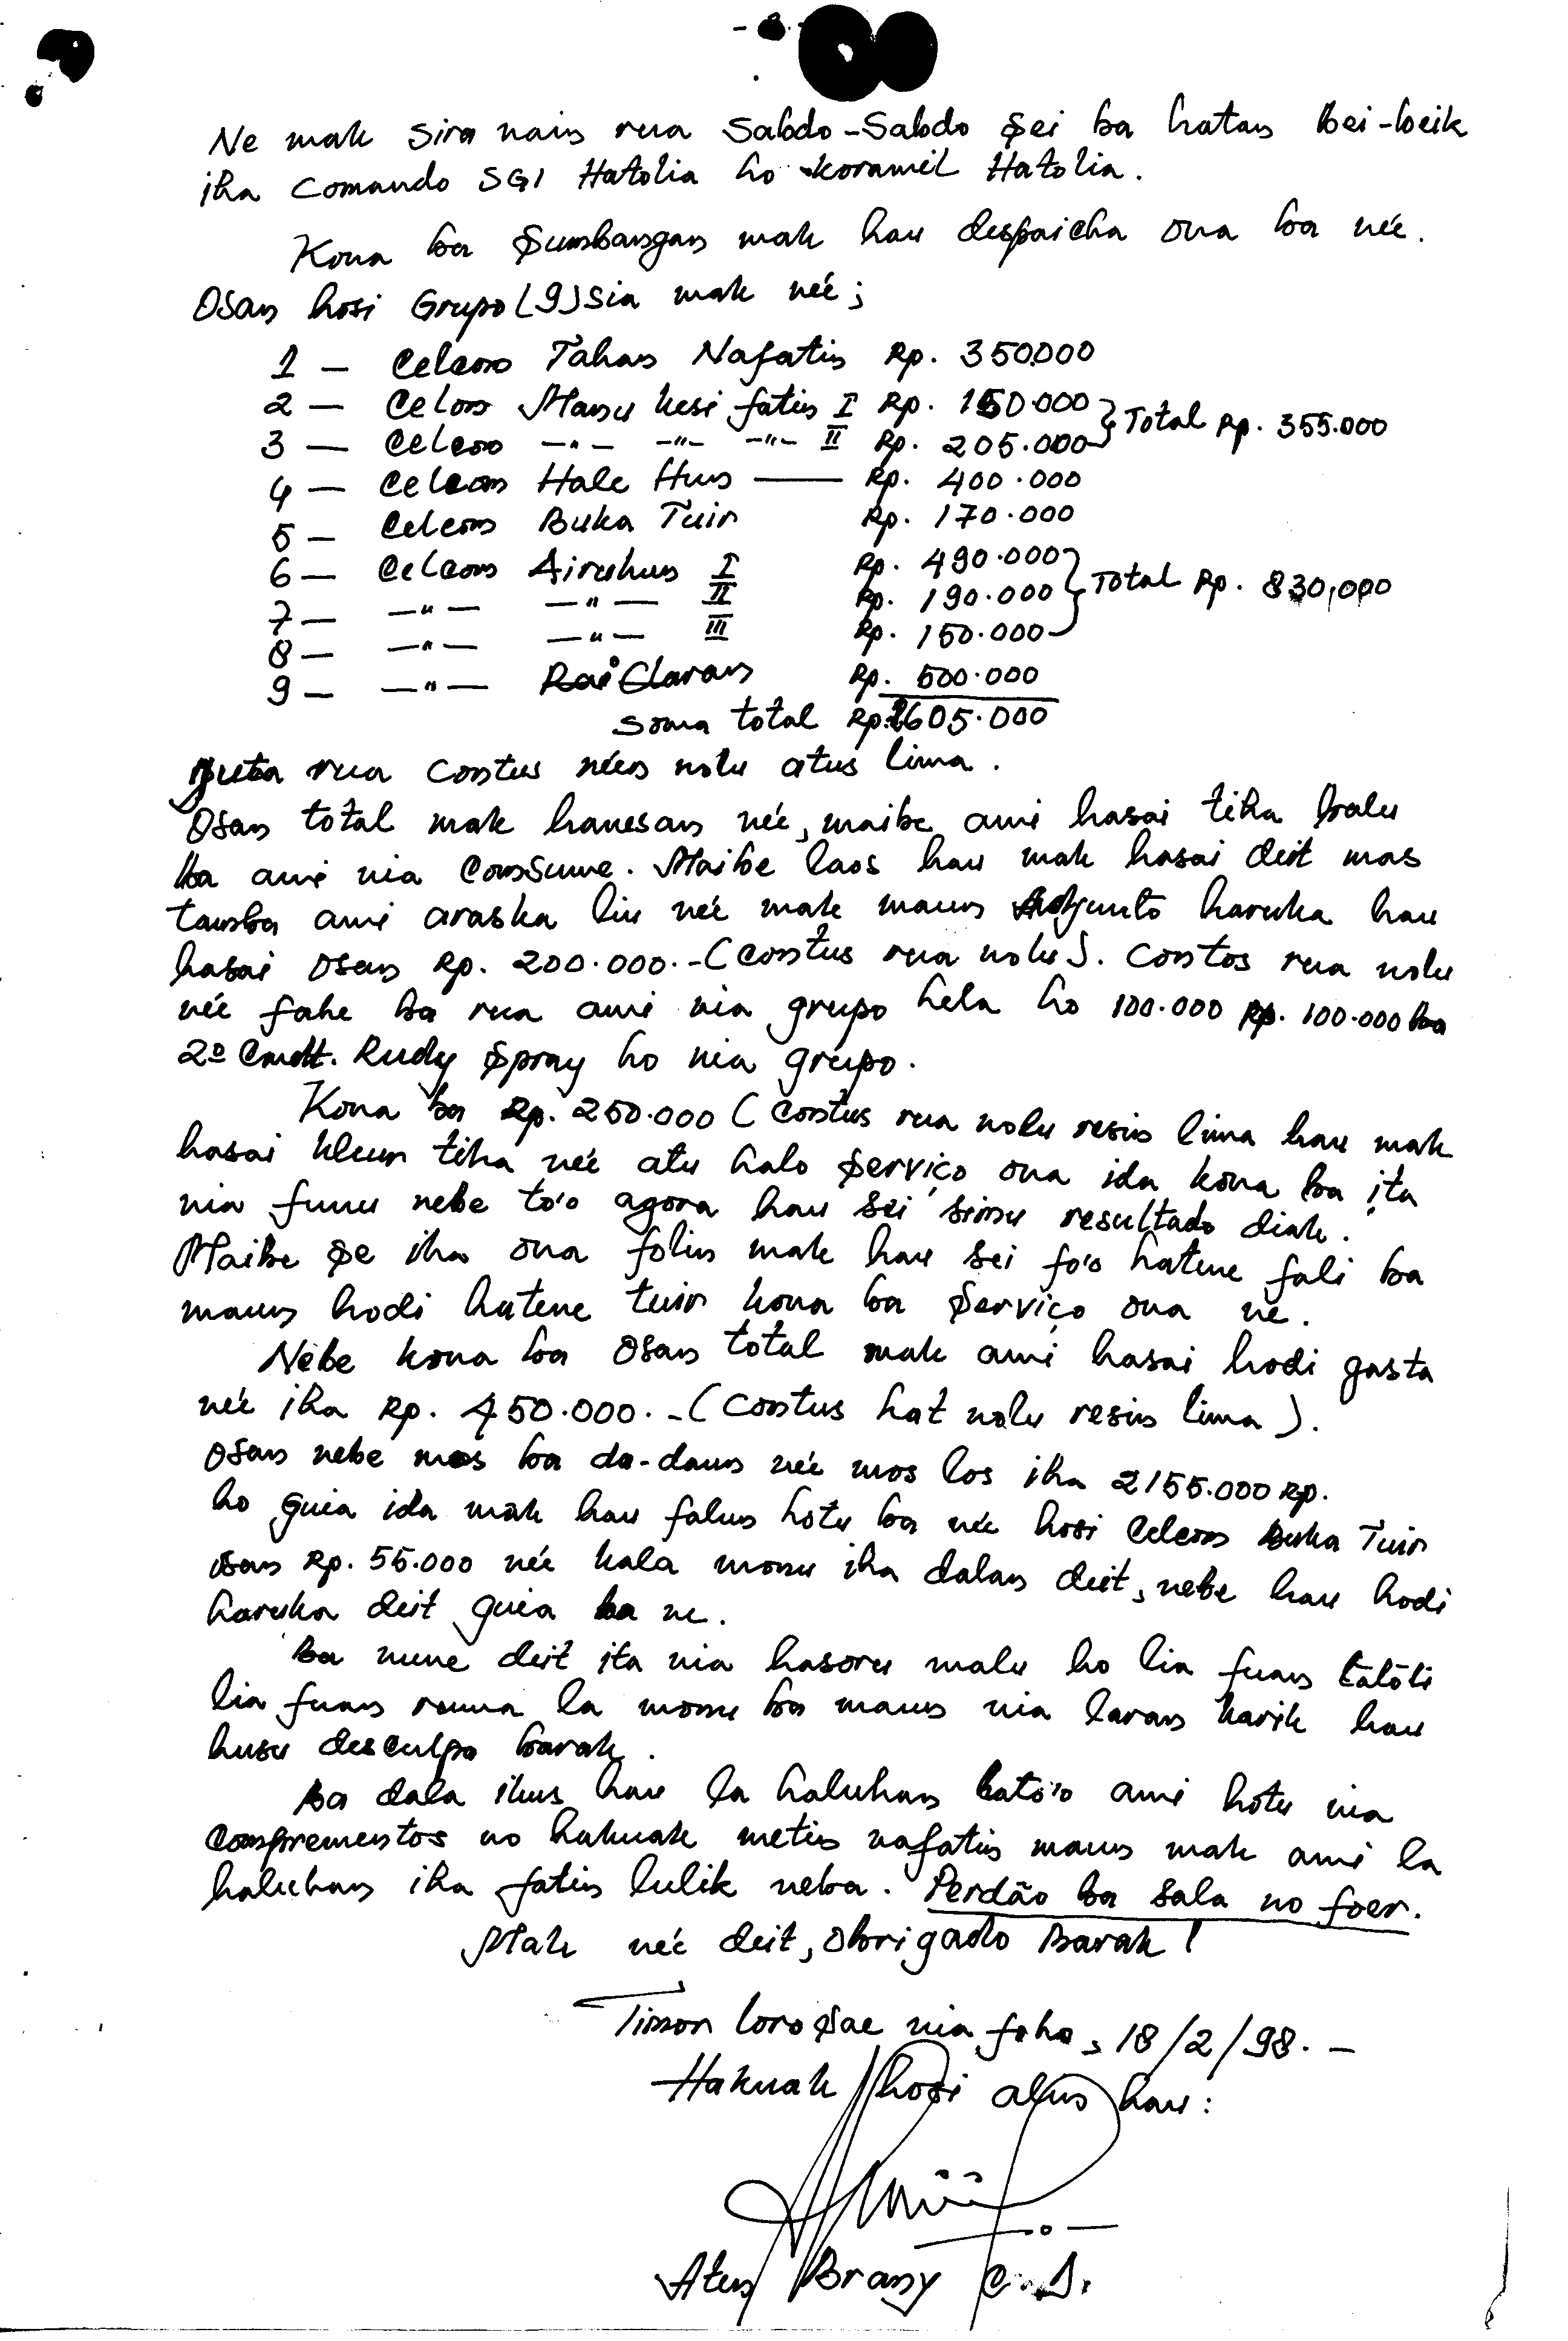 Ne mak sira nain rua Sabdo-Sabdo sei ba hatan bei-beik
iha Comando SGI Hatolia ho koramil Hatolia.
Kona ba Sumbangan mak hau despaicha ona ba neé.
Osan hosi Grupo (9) Sia mak neé;
1 — Celcom Tahan Nafatin Rp. 350.000
2 — Celcom Manu kesi fatin I Rp. 150.000 } Total Rp. 355.000
3 — Celcom —"— —"— —"— II Rp. 205.000
4 — Celcom Hale Hun —— Rp. 400.000
5 — Celcom Buka Tuir Rp. 170.000
6 — Celcom Airuhun I Rp. 490.000 } Total Rp. 830,000
7 — —"— —"— II Rp. 190.000
8 — —"— —"— III Rp. 150.000
9 — —"— Rai Claran Rp. 500.000
Soma total Rp. 2605.000
Juta rua contus néen nolu atus lima.
Osan total mak hanesan neé, maibe ami hasai tiha balu
ba ami nia Consume. Maibe laos hau mak hasai deit mas
tamba ami araska liu neé mak maun Adjunto haruka hau
hasai osan Rp. 200.000.-(contus rua nolu). Contos rua nolu
neé fahe ba rua ami nia grupo hela ho 100.000 Rp. 100.000 ba
2º Cmdt. Rudy Spray ho nia grupo.
Kona ba Rp. 250.000 (Contus rua nolu resin lima hau mak
hasai kleur tiha neé atu halo Serviço ona ida kona ba ita
nia funu nebe to'o agora hau sei simu resultado diak.
Maibe se iha ona folin mak hau sei fo'o hatene fali ba
maun hodi hatene tuir kona ba Serviço ona ne.
Nebe kona ba Osan total mak ami hasai hodi gasta
neé iha Rp. 450.000.-(Contus hat nolu resin lima).
Osan nebe mos ba da-daun neé mos los iha 2155.000 Rp.
ho guia ida mak hau falun hotu ba neé hosi Celcom Buka Tuir
osan Rp. 55.000 neé kala monu iha dalan deit, nebe hau hodi
haruka deit guia ba ne.
Ba nune deit ita nia hasoru malu ho lia fuan tatóli
lia fuan ruma la monu ba maun nia laran karik hau
husu desculpa barak.
Ba dala ikus hau la haluhan hato'o ami hotu nia
Comprementos no hakuak metin nafatin maun mak ami la
haluhan iha fatin lulik neba. Perdão ba sala no foer.
Mak neé deit, obrigado Barak!
Timor loro Sae nia foho, 18/2/98.—
Hakuak hosi alin hau:
Aten Brany C.D.